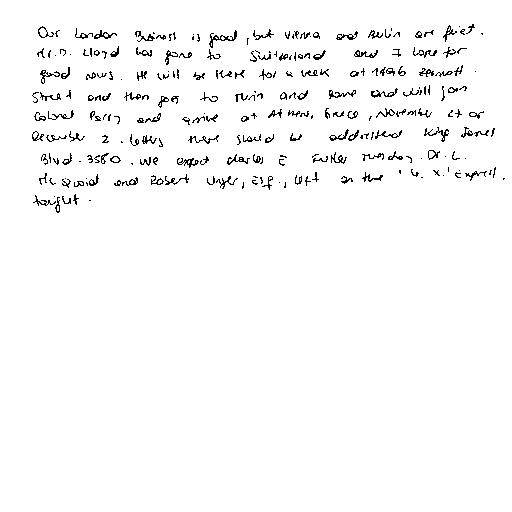 Our London Business is good, but Vienna and Berlin are quiet.
Mr. D. Lloyd has gone to Switzerland and I hope for
good news. He will be there for a week at 1496 Zermott
Street and then goes to Turin and Rome and will join
Colonel Parry and arrive at Athens, Greece, November 27 or
December 2. Letters there should be addressed King James
Blvd. 3580. We expect Charles E. Fuller Tuesday. Dr. L.
Mc Quaid and Robert Unger, Esq., left on the 'V. X.' Express,
tonight.